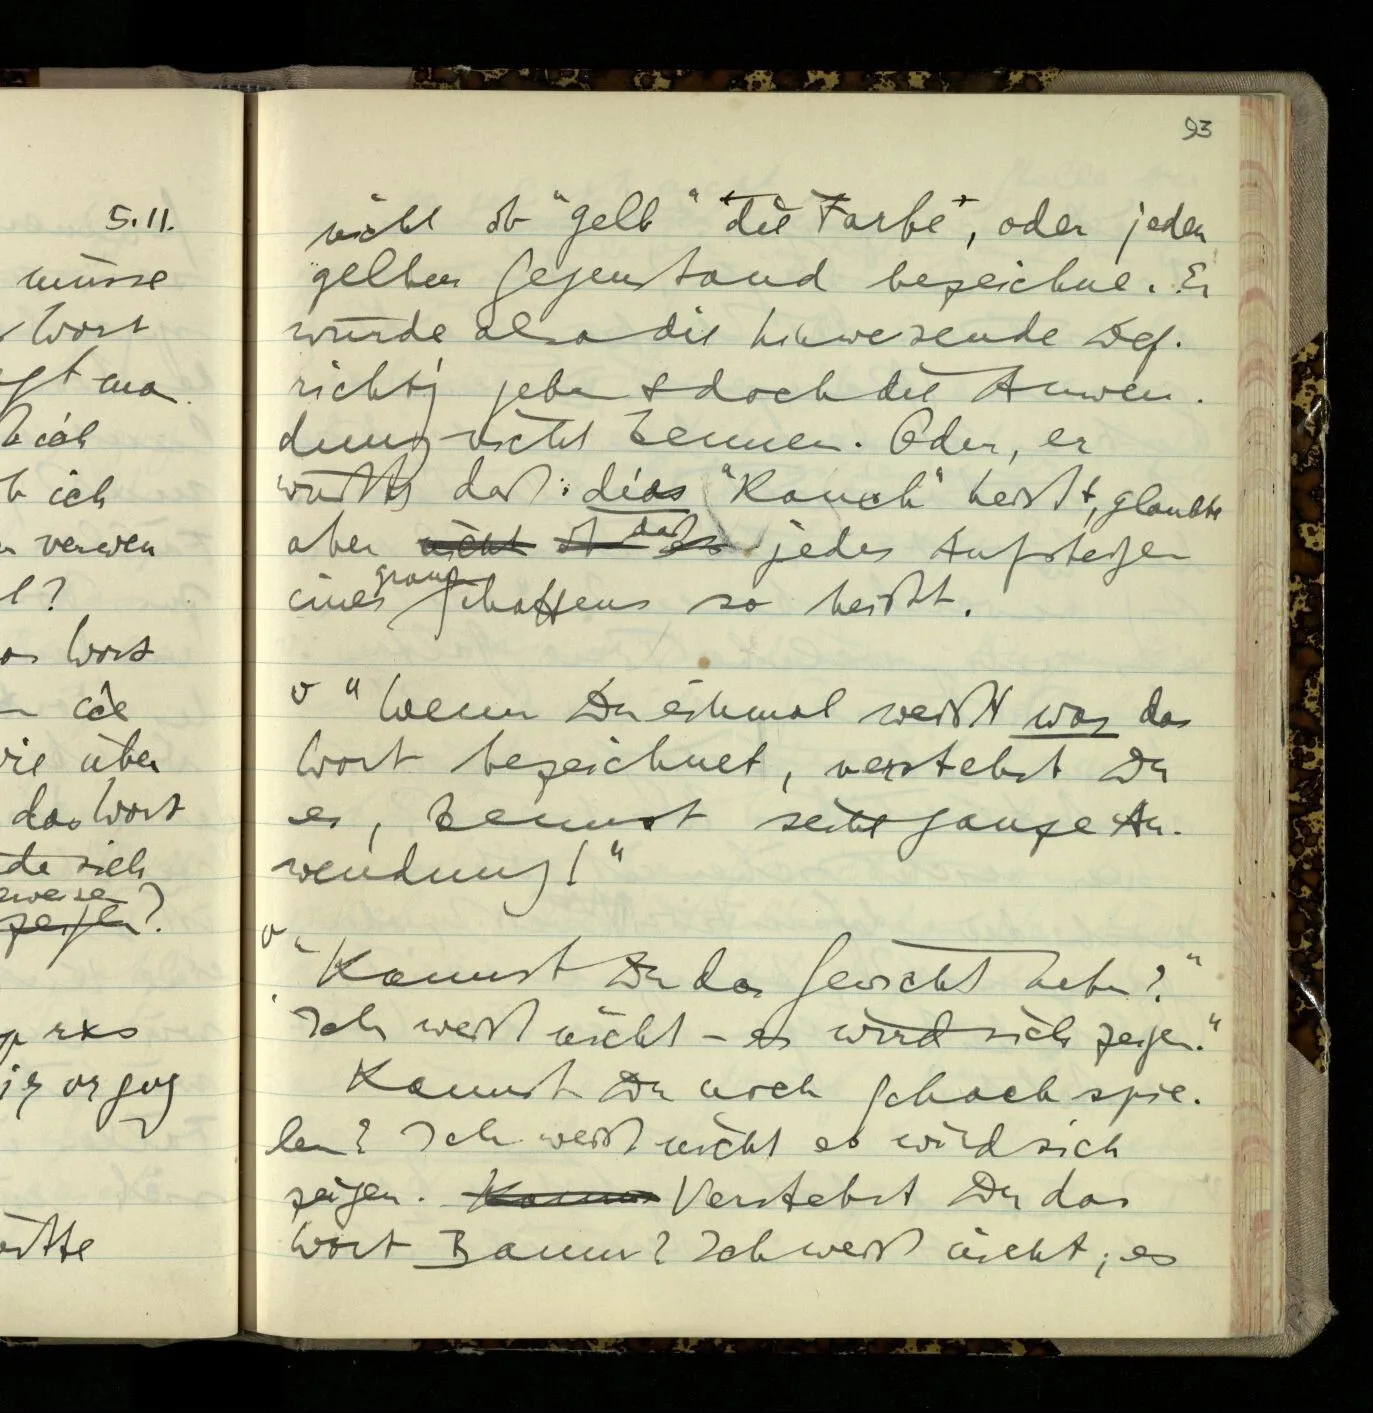 5.11.
müsse
Wort
ich
ich
verwen
?
Wort
die
wie über
das Wort
sich
zeigen?
rxs
93
nicht ob "gelb" "die Farbe", oder jeden
gelben Gegenstand bezeichne. Er
würde also die hinweisende Def.
richtig geben & doch die Anwen-
dung nicht kennen. Oder, er
wüßte daß: dies "Rauch" heißt, glaubte
aber nicht ob daß es jedes Aufsteigen
eines grauen Schattens so heißt.
"Wenn Du einmal weißt was das
Wort bezeichnet, verstehst Du
es, kennst seine ganze An-
wendung!"
"Kannst Du das Gewicht heben?"
"Ich weiß nicht – es wird sich zeigen."
Kannst Du noch Schach spie-
len? Ich weiß nicht es wird sich
zeigen. Kannst Verstehst Du das
Wort Baum? Ich weiß nicht; es